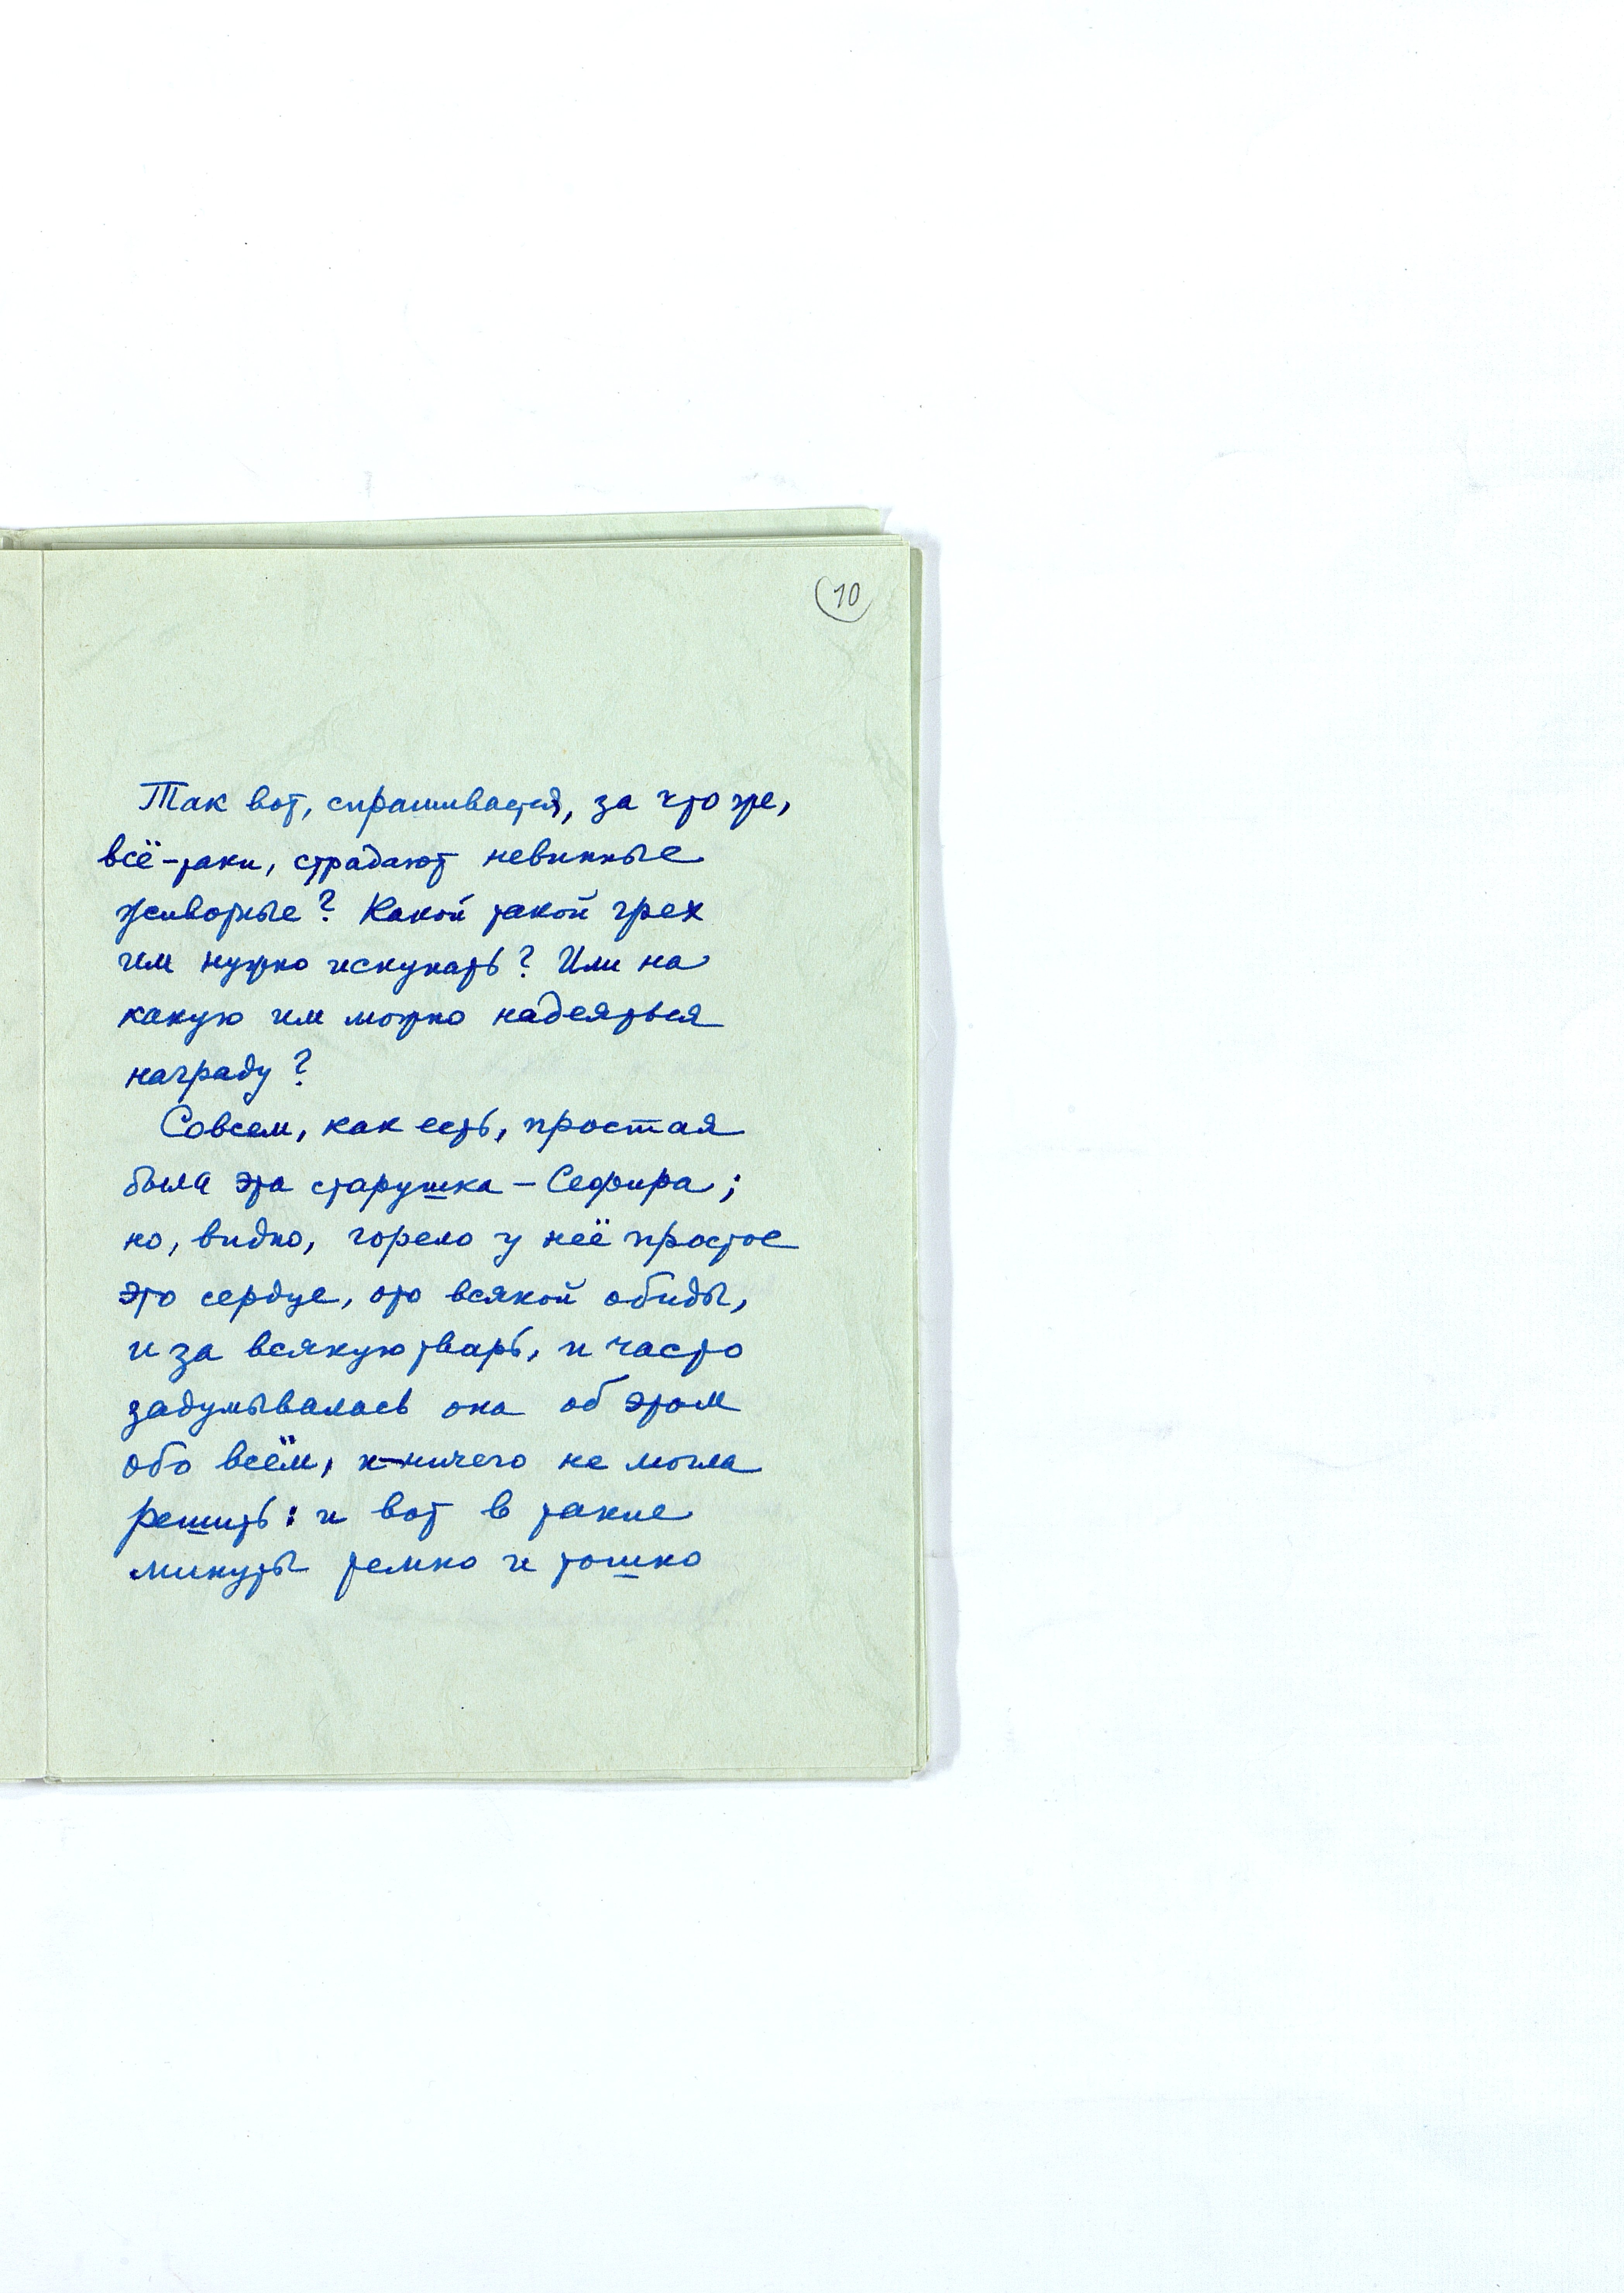 10
Так вот, спрашивается, за что же,
всё-таки, страдают невинные
животные? Какой такой грех
им нужно искупать? Или на
какую им можно надеяться
награду?
Совсем, как есть, простая
была эта старушка – Сефира;
но, видно, горело у неё простое
это сердце, ото всякой обиды,
и за всякую тварь, и часто
задумывалась она об этом
обо всём, и ничего не могла
решить: и вот в такие
минуты темно и тошно